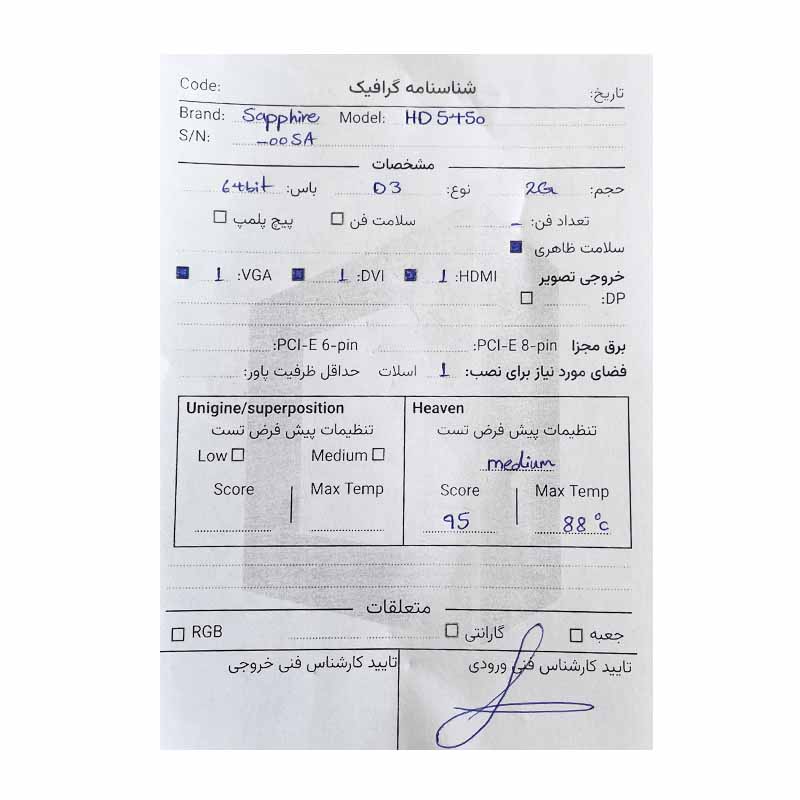 Code: شناسنامه گرافیک تاریخ:
Brand: Sapphire Model: HD 5450
S/N: -00SA
مشخصات
حجم: 2G نوع: D3 باس: 64bit
تعداد فن: - سلامت فن پیچ پلمپ
سلامت ظاهری
خروجی تصویر HDMI: 1 DVI: 1 VGA: 1
DP:
برق مجزا PCI-E 8-pin: PCI-E 6-pin:
فضای مورد نیاز برای نصب: 1 اسلات حداقل ظرفیت پاور:
Unigine/superposition Heaven
تنظیمات پیش فرض تست تنظیمات پیش فرض تست
Low Medium medium
Score Max Temp Score Max Temp
95 88 °c
متعلقات
جعبه گارانتی RGB
تایید کارشناس فنی ورودی تایید کارشناس فنی خروجی